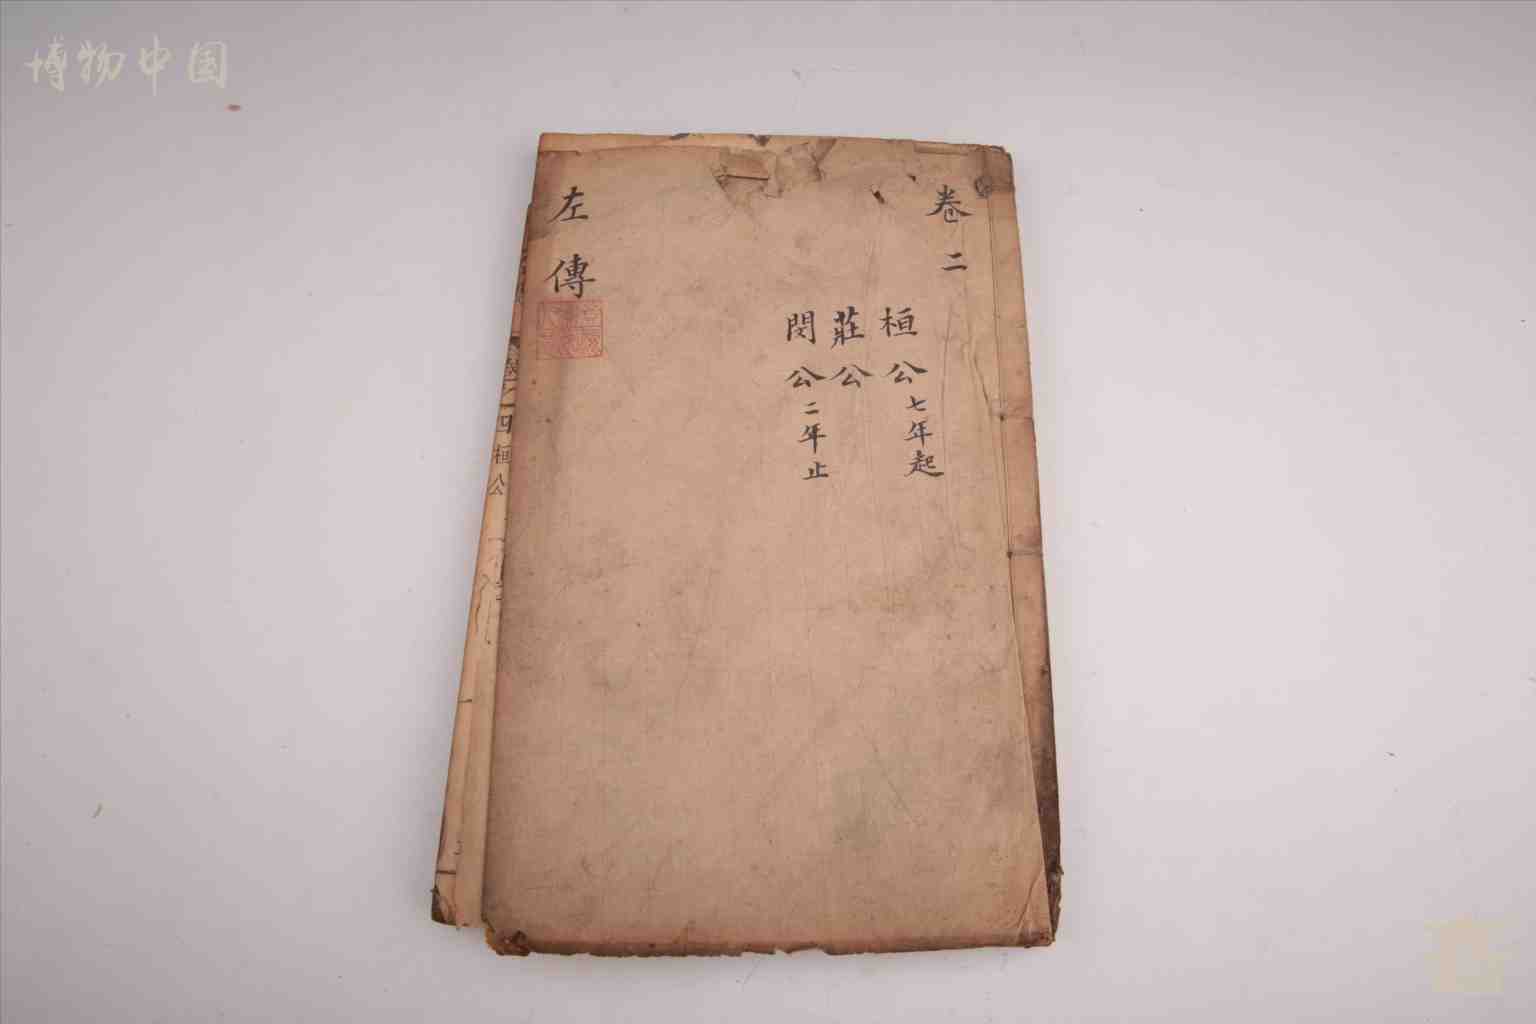 博物中国
卷二
桓公七年起
莊公
閔公二年止
左傳
四桓公